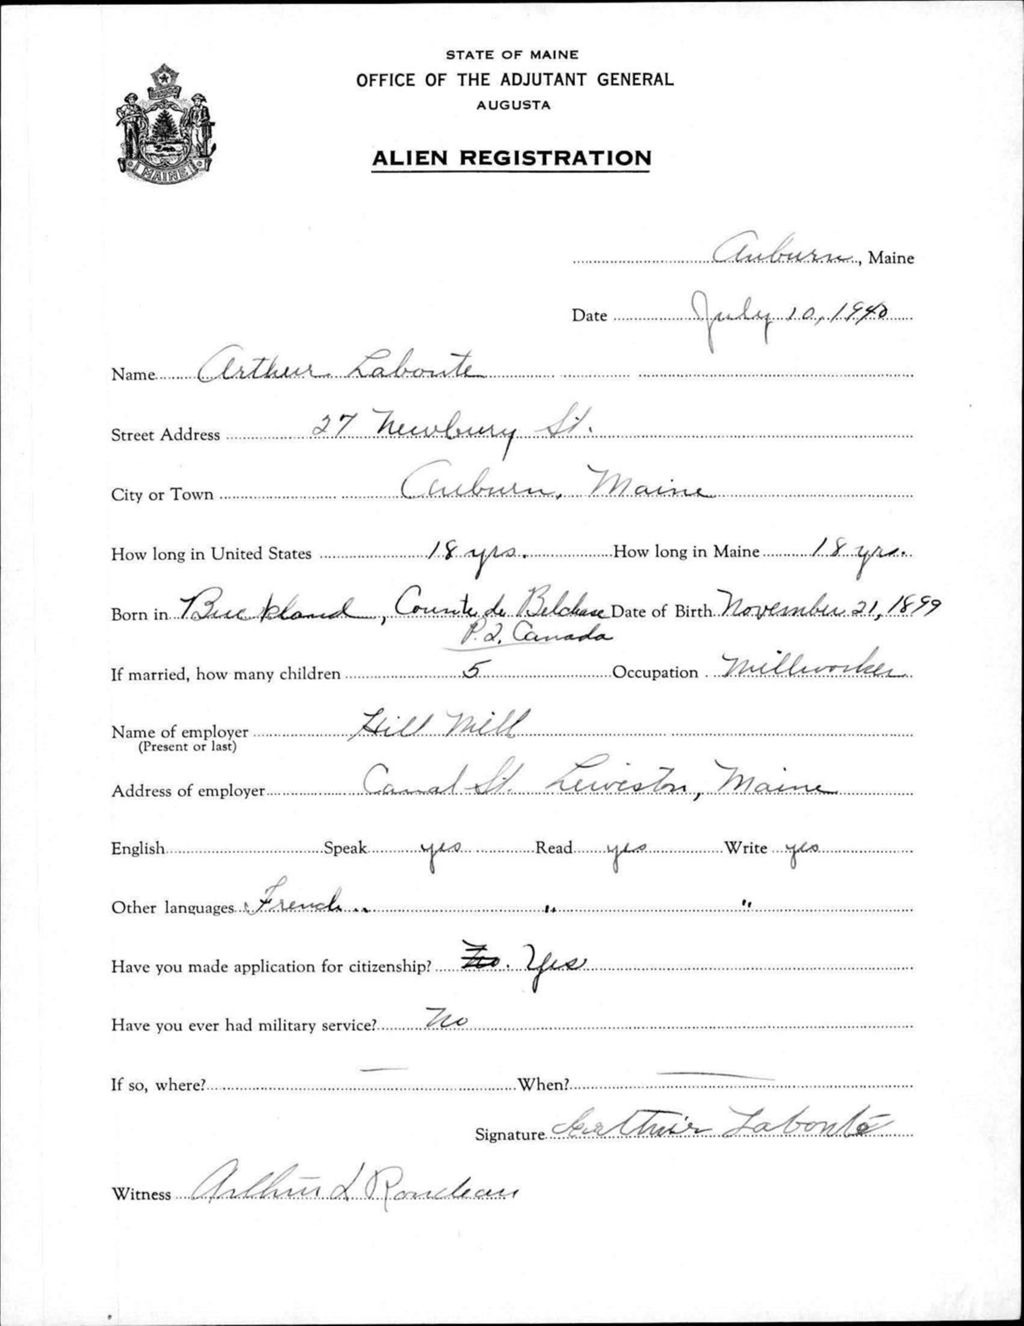 STATE OF MAINE
OFFICE OF THE ADJUTANT GENERAL
AUGUSTA
ALIEN REGISTRATION
MAINE
Auburn, Maine
Date July 10, 1940
Name Arthur Labonte
Street Address 27 Newbury St.
City or Town Auburn, Maine
How long in United States 18 yrs. How long in Maine 18 yrs.
Born in Buckland, Counte de Belchase Date of Birth November 21, 1899
P.Q. Canada
If married, how many children 5 Occupation Millworker
Name of employer Hill Mill
(Present or last)
Address of employer Canal St. Lewiston, Maine
English Speak yes Read yes Write yes
Other languages French " " "
Have you made application for citizenship? No. Yes
Have you ever had military service? No
If so, where? — When? —
Signature Arthur Labonté
Witness Arthur L Rondeau